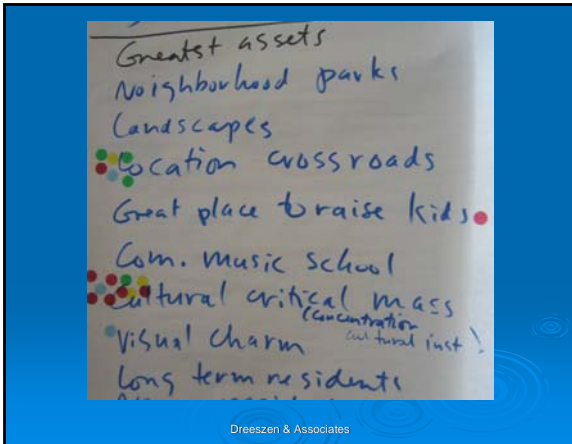 Greatst assets
Neighborhood parks
Landscapes
Location crossroads
Great place to raise kids
Com. music school
Cultural critical mass
(concentration
cultural inst!
Visual charm
Long term residents
Dreeszen & Associates